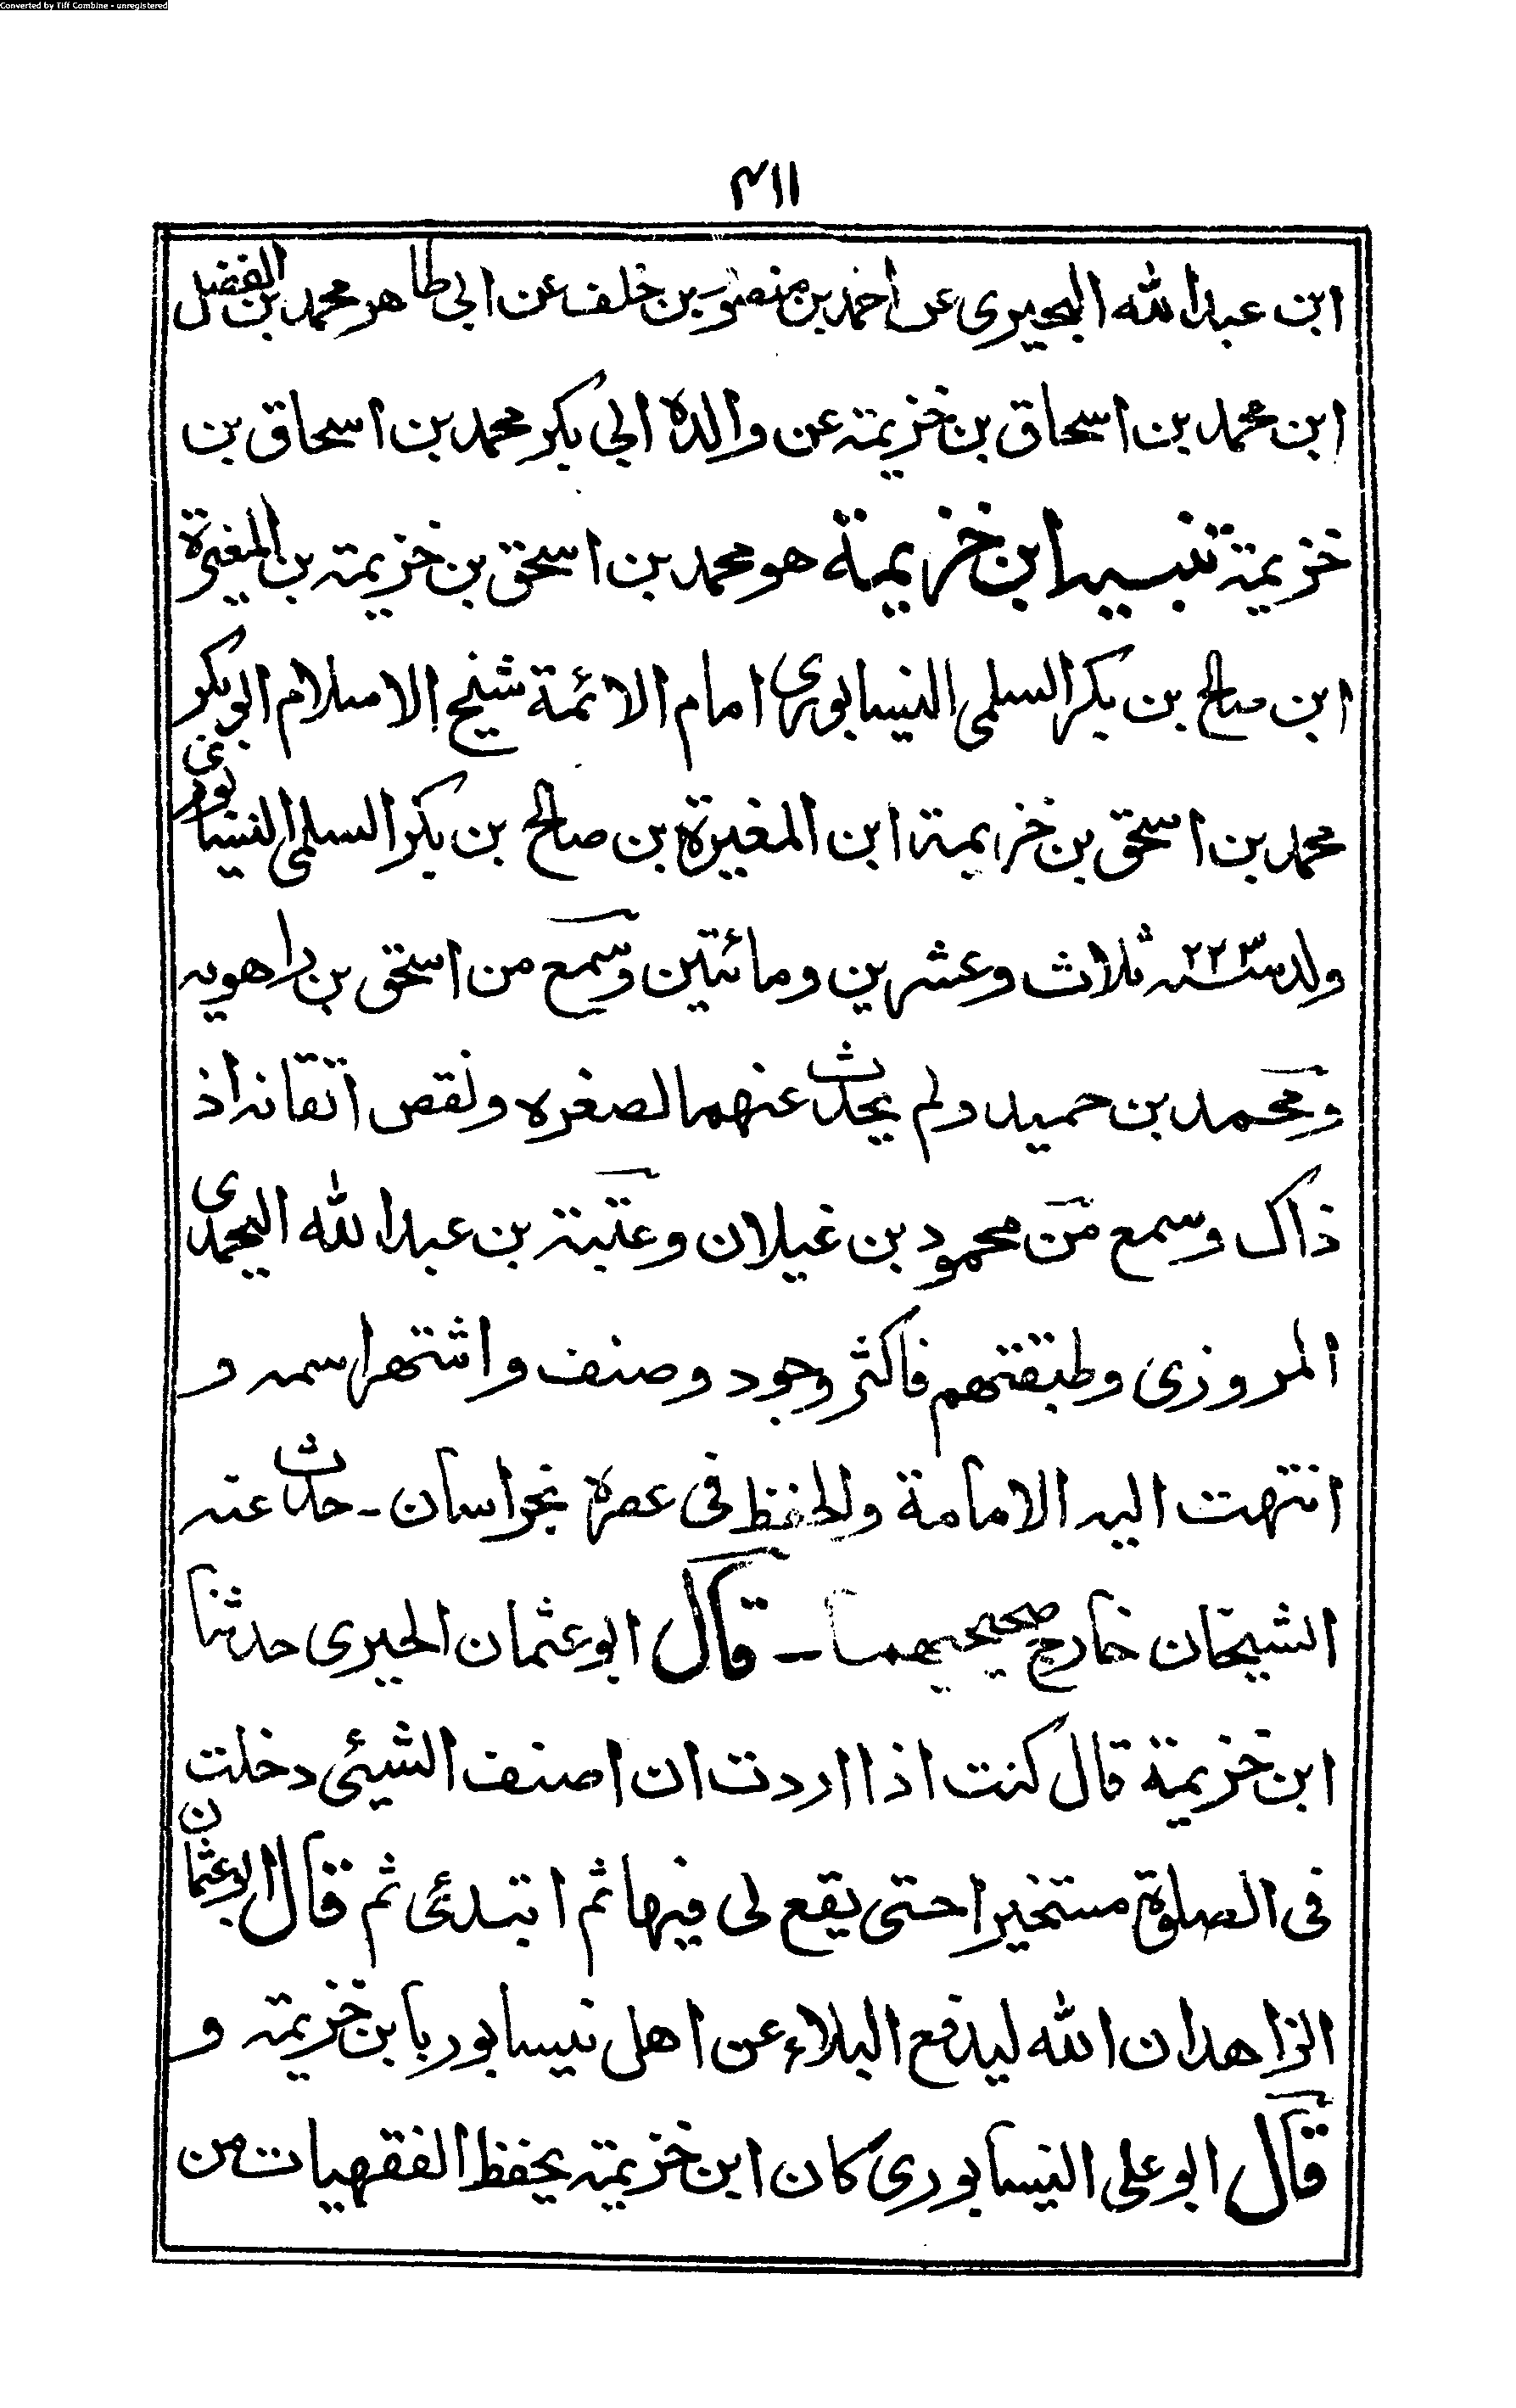 Converted by Tiff Combine - unregistered
۴۱۱
ابن عبدالله البحيرى عن احمد بن منصور بن خلف عن ابى طاهر محمد بن الفضل
ابن محمد بن اسحاق بن خزيمة عن والده ابى بكر محمد بن اسحاق بن
خزيمة تنبيه ابن خزيمة هو محمد بن اسحق بن خزيمة بن المغيرة
ابن صالح بن بكر السلمى النيسابورى امام الائمة شيخ الاسلام ابو بكر
محمد بن اسحق بن خزيمة ابن المغيرة بن صالح بن بكر السلمى النيسابورى
ولد سنة ٢٢٣ ثلاث وعشرين ومائتين وسمع من اسحق بن راهويه
ومحمد بن حميد ولم يحدث عنهما لصغره ونقص اتقانه اذ
ذاك وسمع من محمود بن غيلان وعتبة بن عبدالله اليحمدى
المروزى وطبقتهم فاكثر وجود وصنف واشتهر اسمه و
انتهت اليه الامامة والحفظ فى عصره بخراسان - حدث عنه
الشيخان خارج صحيحيهما - قال ابو عثمان الحيرى حدثنا
ابن خزيمة قال كنت اذا اردت ان اصنف الشيئى دخلت
فى الصلوة مستخيرا حتى يقع لى فيها ثم ابتدئى ثم قال ابو عثمان
الزاهد ان الله ليدفع البلاء عن اهل نيسابور بابن خزيمة و
قال ابو على النيسابورى كان ابن خزيمة يحفظ الفقهيات من